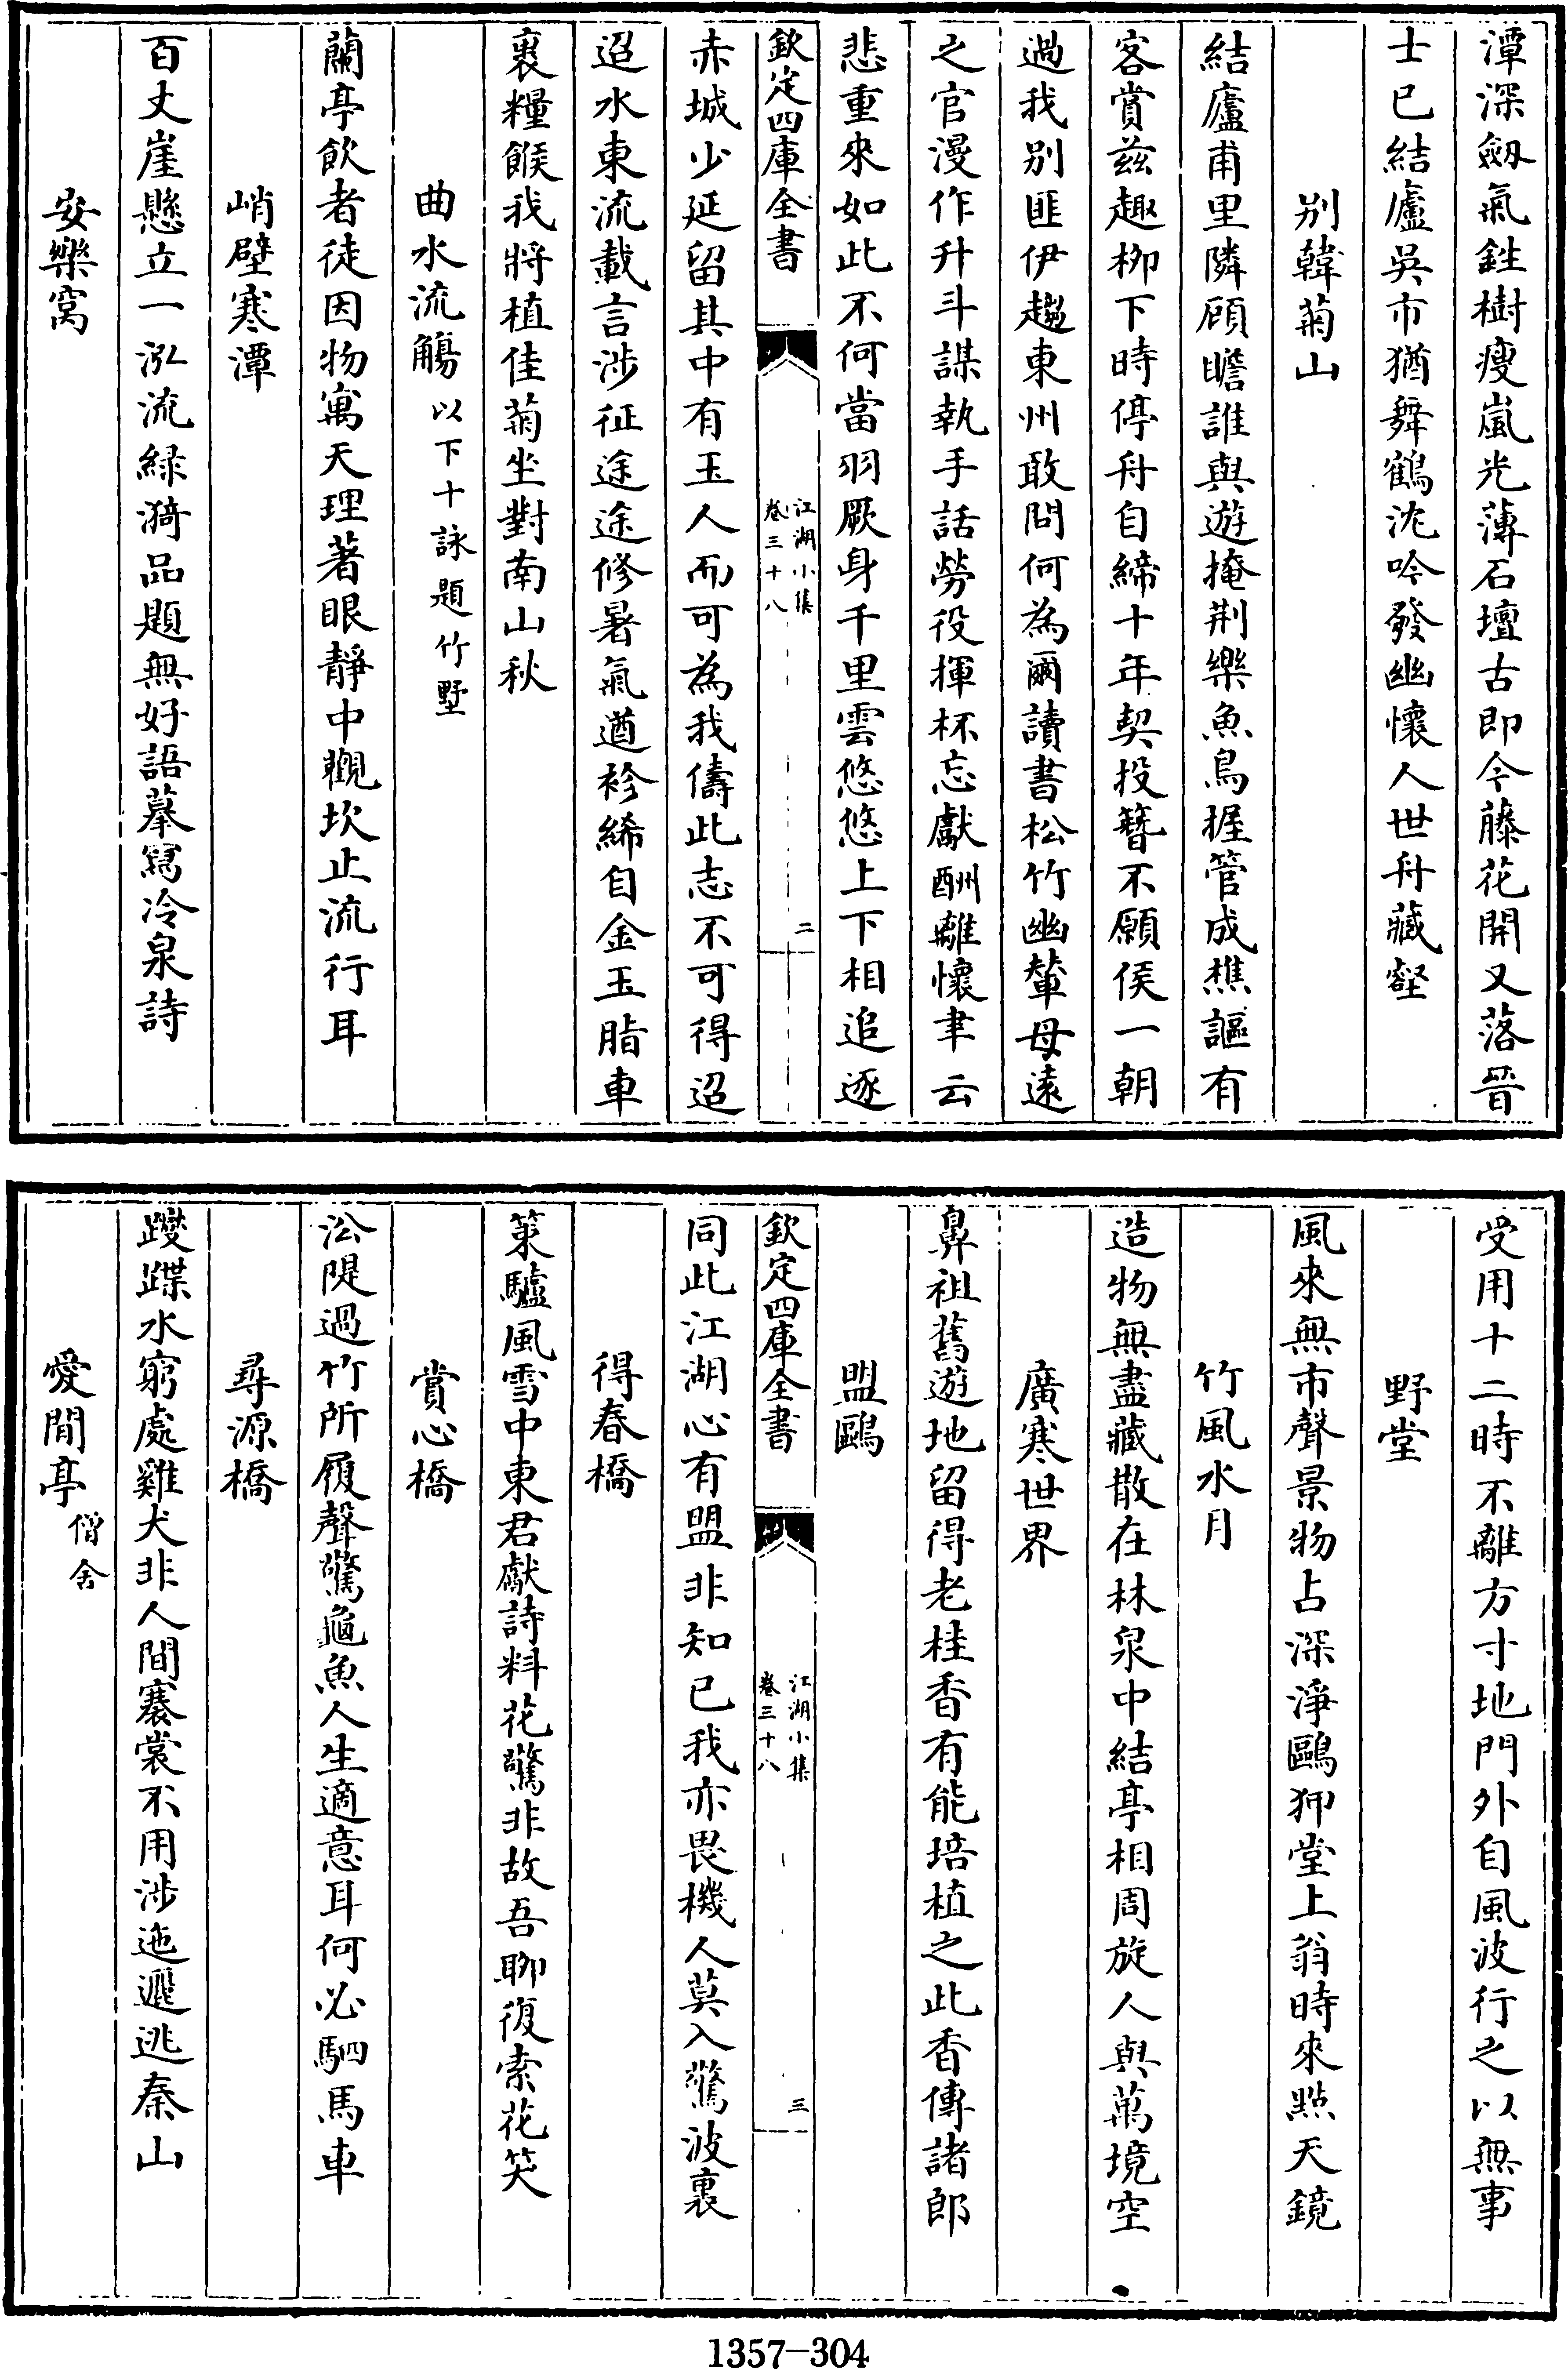 潭深劔氣銼樹瘦嵐光薄石壇古即今藤花開又落晉
士已結廬吳市猶舞鶴沈吟發幽懷人世舟藏壑
别韓菊山
結廬甫里隣顧瞻誰與遊掩荆樂魚鳥握管成樵謳有
客賞兹趣栁下時停舟自締十年契投簪不願侯一朝
過我别匪伊趨東州敢問何為爾讀書松竹幽輦母遠
之官漫作升斗謀執手話勞役揮杯忘獻酬離懷聿云
悲重來如此不何當羽厥身千里雲悠悠上下相追逐
欽定四庫全書
江湖小集
卷三十八
二
赤城少延留其中有玉人而可為我儔此志不可得迢
迢水東流載言涉征途途修暑氣遒袗絺自金玉脂車
裹糧餱我將植佳菊坐對南山秋
曲水流觴以下十詠題竹墅
蘭亭飲者徒因物寓天理著眼靜中觀坎止流行耳
峭壁寒潭
百丈崖懸立一泓流緑漪品題無好語摹寫冷泉詩
安樂窩
受用十二時不離方寸地門外自風波行之以無事
野堂
風來無市聲景物占深淨鷗狎堂上翁時來㸃天鏡
竹風水月
造物無盡藏散在林泉中結亭相周旋人與萬境空
廣寒世界
鼻祖舊遊地留得老桂香有能培植之此香傳諸郎
盟鷗
欽定四庫全書
江湖小集
卷三十八
三
同此江湖心有盟非知已我亦畏機人莫入驚波裏
得春橋
策驢風雪中東君獻詩料花驚非故吾聊復索花笑
賞心橋
㳂隄過竹所履聲驚龜魚人生適意耳何必駟馬車
尋源橋
躞蹀水窮處雞犬非人間褰裳不用涉迤邐逃秦山
愛閒亭僧舍
1357-304